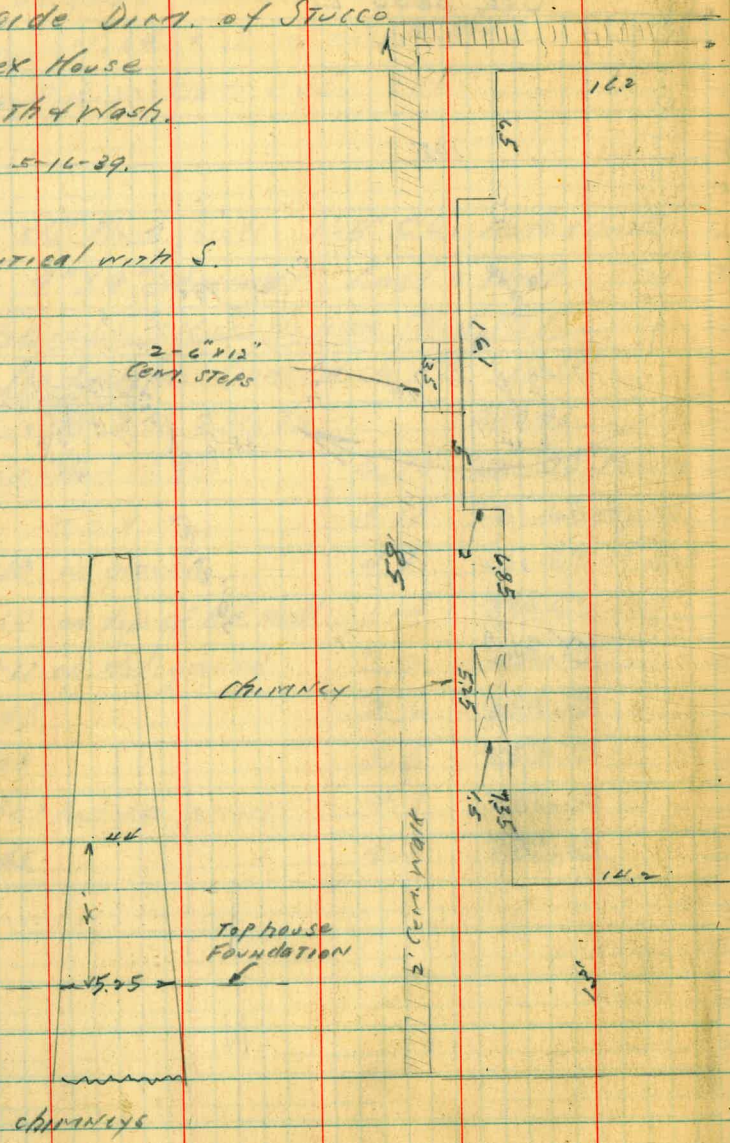 side Dim. of Stucco
ex House
Th & Wash.
5-16-39.
tical with S.
16.2
6.5
2-6"x12"
Cem. Steps
3.5
16.1
5
2
58'
6.85
Chimney
5.25
1.5
7.35
2' Cem. Walk
14.2
4.4
4'
Top house
Foundation
5.25
chimneys